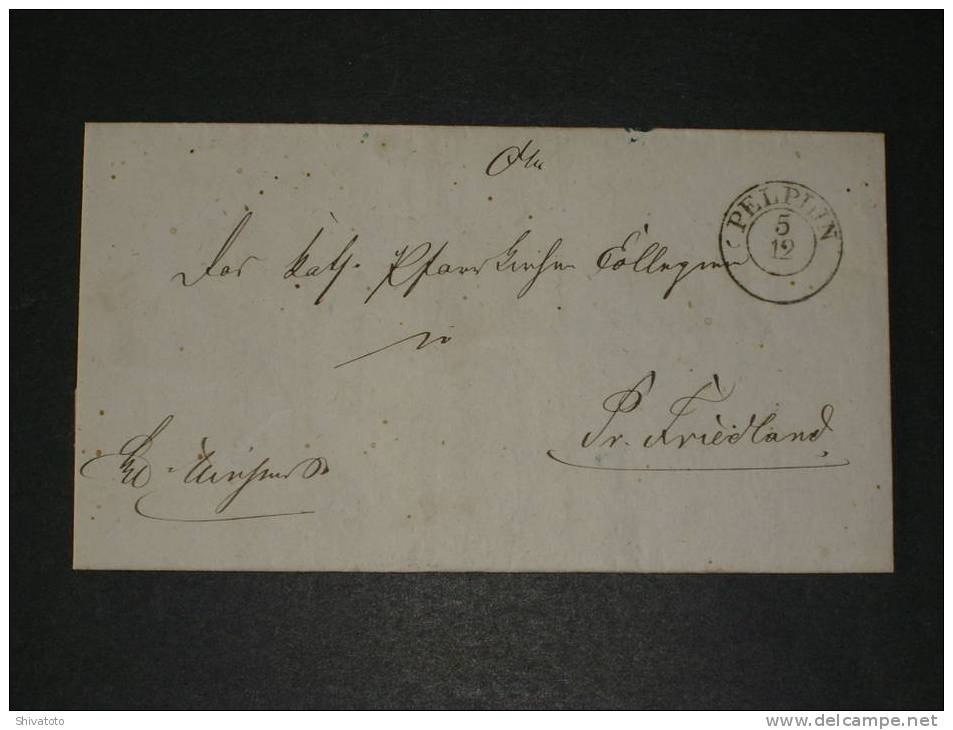 An
PELPLIN
5
12
Das kath. Pfarrkirchen Collegium
zu
Pr. Friedland
Shivatoto
www.delcampe.net